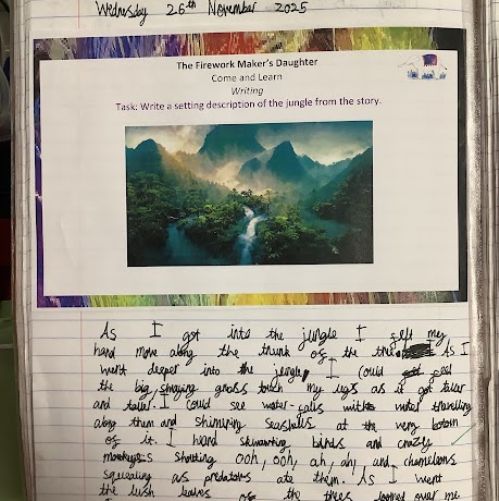 Wednesday 26th November 2025
The Firework Maker's Daughter
Come and Learn
Writing
Task: Write a setting description of the jungle from the story.
As I got into the jungle I felt my
hand move along the trunk of the tree As I
went deeper into the jungle, I could feel
the big, swaying grass touch my legs as it got taller
and taller. I could see water-falls with water travelling
along them and shimmering seashells at the very bottom
of it. I heard birds and crazy
monkeys shouting ooh, ooh, ah, ah, and chameleons
squealing as predators ate them. As I went
the lush leaves of the trees loomed over me